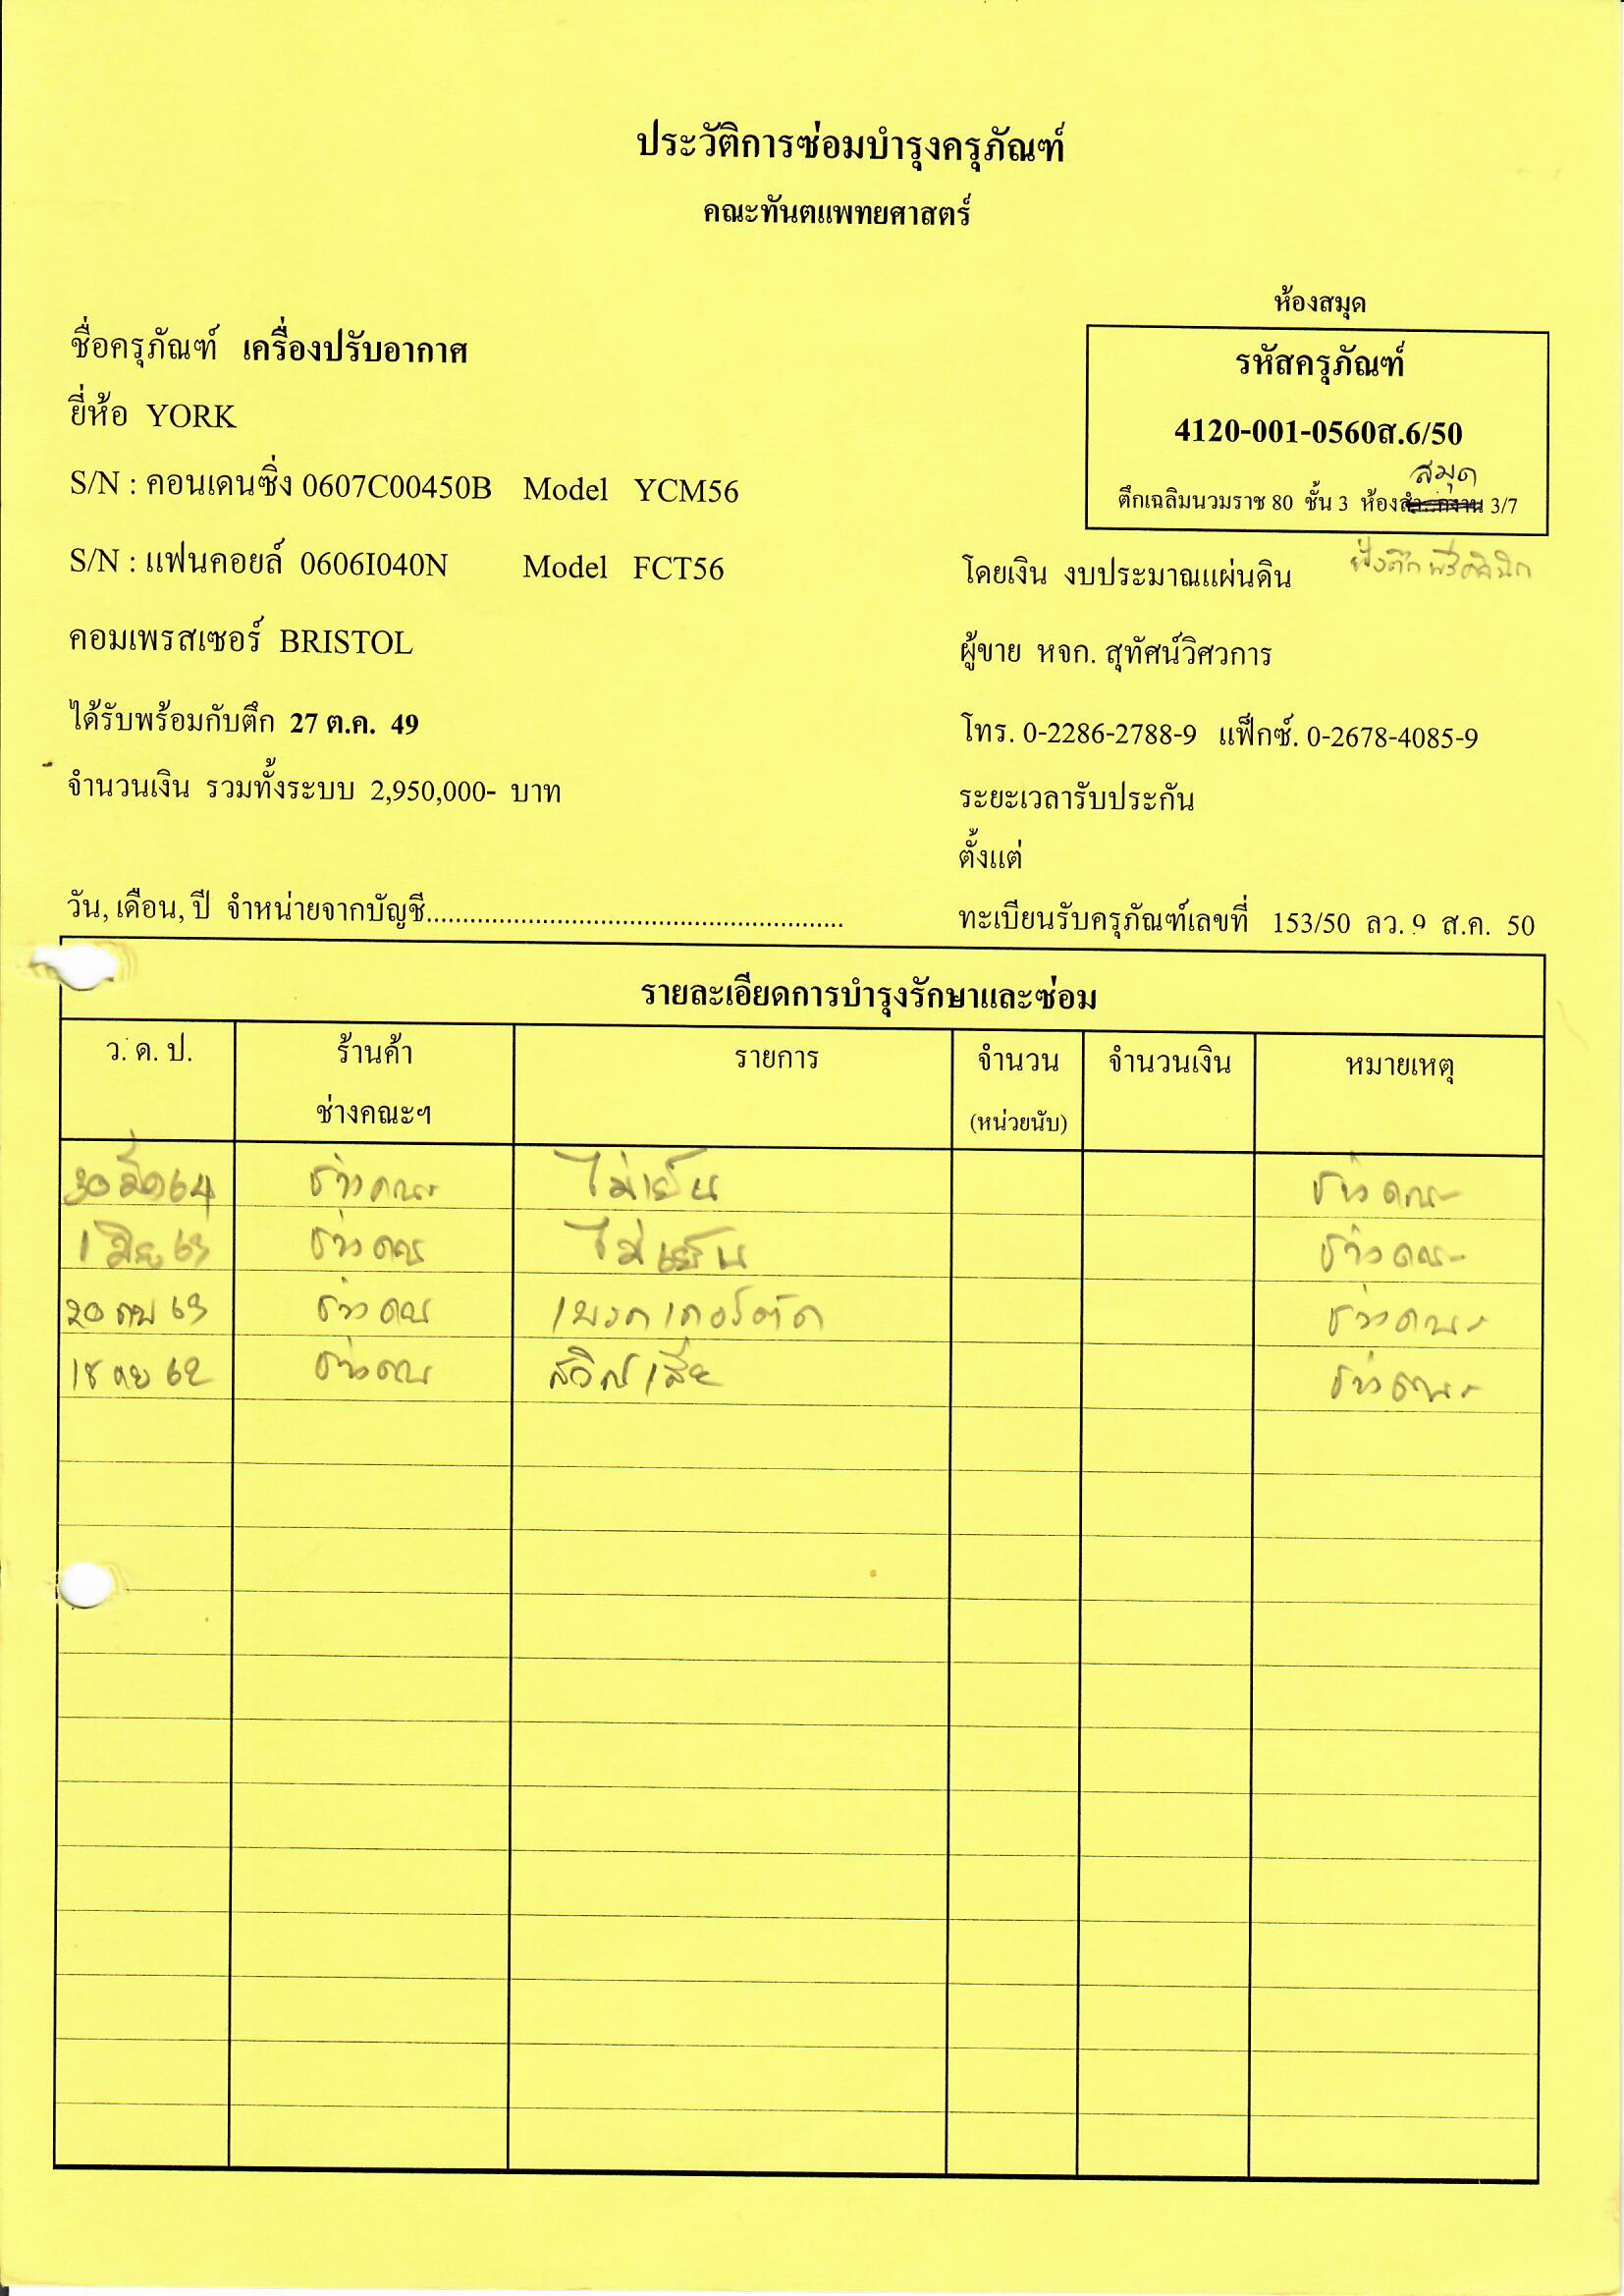 ประวัติการซ่อมบำรุงครุภัณฑ์
คณะทันตแพทยศาสตร์
ห้องสมุด
ชื่อครุภัณฑ์ เครื่องปรับอากาศ
รหัสครุภัณฑ์
ยี่ห้อ YORK
4120-001-0560ส.6/50
S/N : คอนเดนซิ่ง 0607C00450B Model YCM56
สมุด
ตึกเฉลิมนวมราช 80 ชั้น 3 ห้อง 3/7
S/N : แฟนคอยล์ 0606I040N Model FCT56
โดยเงิน งบประมาณแผ่นดิน ฝั่งตึกพรีคลินิก
คอมเพรสเซอร์ BRISTOL
ผู้ขาย หจก. สุทัศน์วิศวการ
ได้รับพร้อมกับตึก 27 ต.ค. 49
โทร. 0-2286-2788-9 แฟ็กซ์. 0-2678-4085-9
จำนวนเงิน รวมทั้งระบบ 2,950,000- บาท
ระยะเวลารับประกัน
ตั้งแต่
วัน, เดือน, ปี จำหน่ายจากบัญชี........................................................
ทะเบียนรับครุภัณฑ์เลขที่ 153/50 ลว. 9 ส.ค. 50
รายละเอียดการบำรุงรักษาและซ่อม
ว. ด. ป. ร้านค้า รายการ จำนวน จำนวนเงิน หมายเหตุ
ช่างคณะฯ (หน่วยนับ)
30 64 ช่างคณะ ไม่เย็น ช่างคณะ
1 63 ช่างคณะ ไม่เย็น ช่างคณะ
20 กพ 63 ช่างคณะ เบรคเกอร์ตัด ช่างคณะ
18 62 ช่างคณะ สวิตเสีย ช่างคณะ